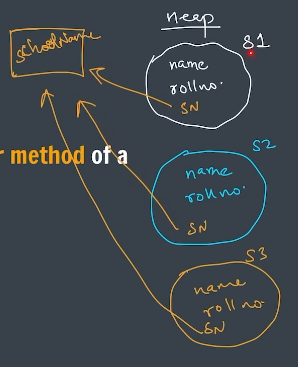 heap
schoolName
S1
name
roll no.
SN
r method of a
S2
name
roll no.
SN
S3
name
roll no.
SN